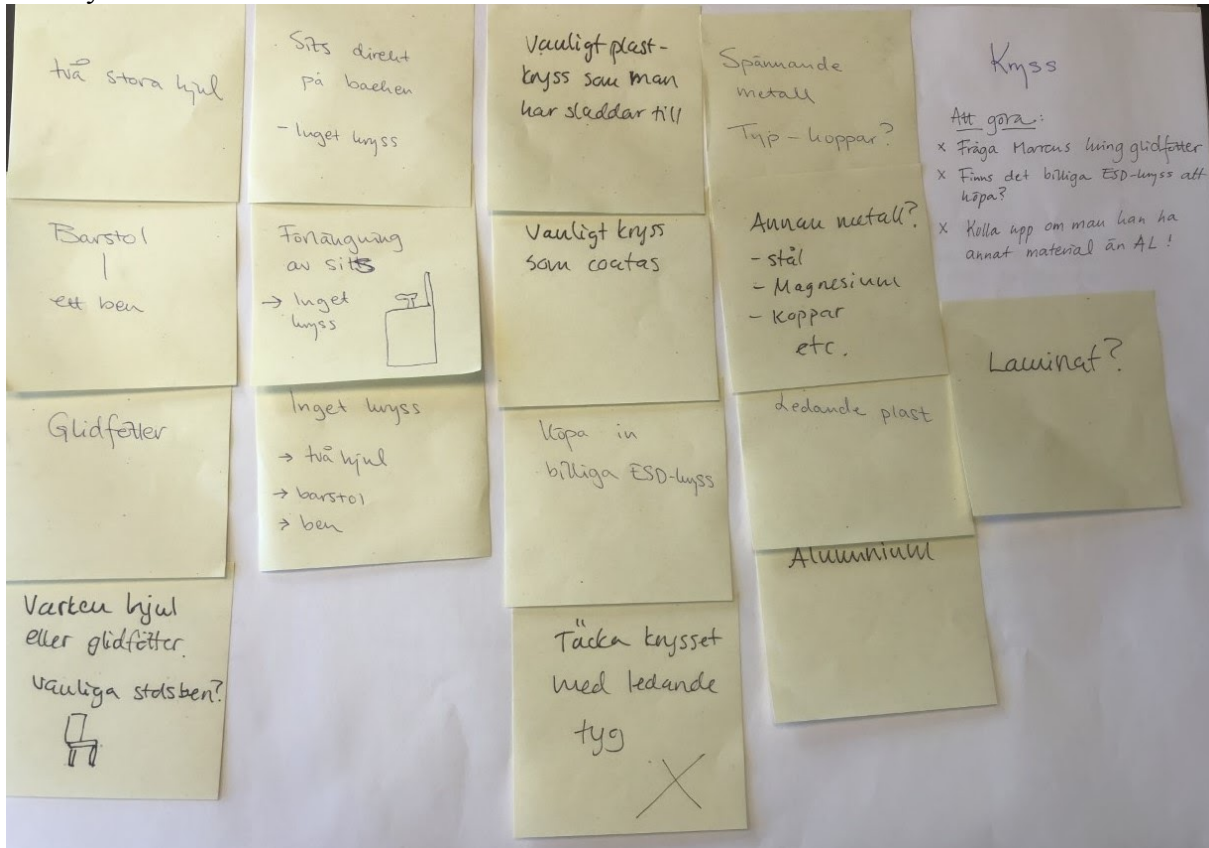 två stora hjul
Barstol
ett ben
Glidfötter
Varken hjul
eller glidfötter.
vanliga stolsben?
Sits direkt
på backen
- Inget kryss
Förlängning
av sits
→ Inget
kryss
Inget kryss
→ två hjul
→ barstol
→ ben
Vanligt plast-
kryss som man
har sladdar till
Vanligt kryss
som coatas
Köpa in
billiga ESD-kryss
Täcka krysset
med ledande
tyg
Spännande
metall
Typ - koppar?
Annan metall?
- stål
- Magnesium
- Koppar
etc.
Ledande plast
Aluminium
Kryss
Att göra:
x Fråga Marcus kring glidfötter
x Finns det billiga ESD-kryss att
köpa?
x Kolla upp om man kan ha
annat material än AL!
Laminat?